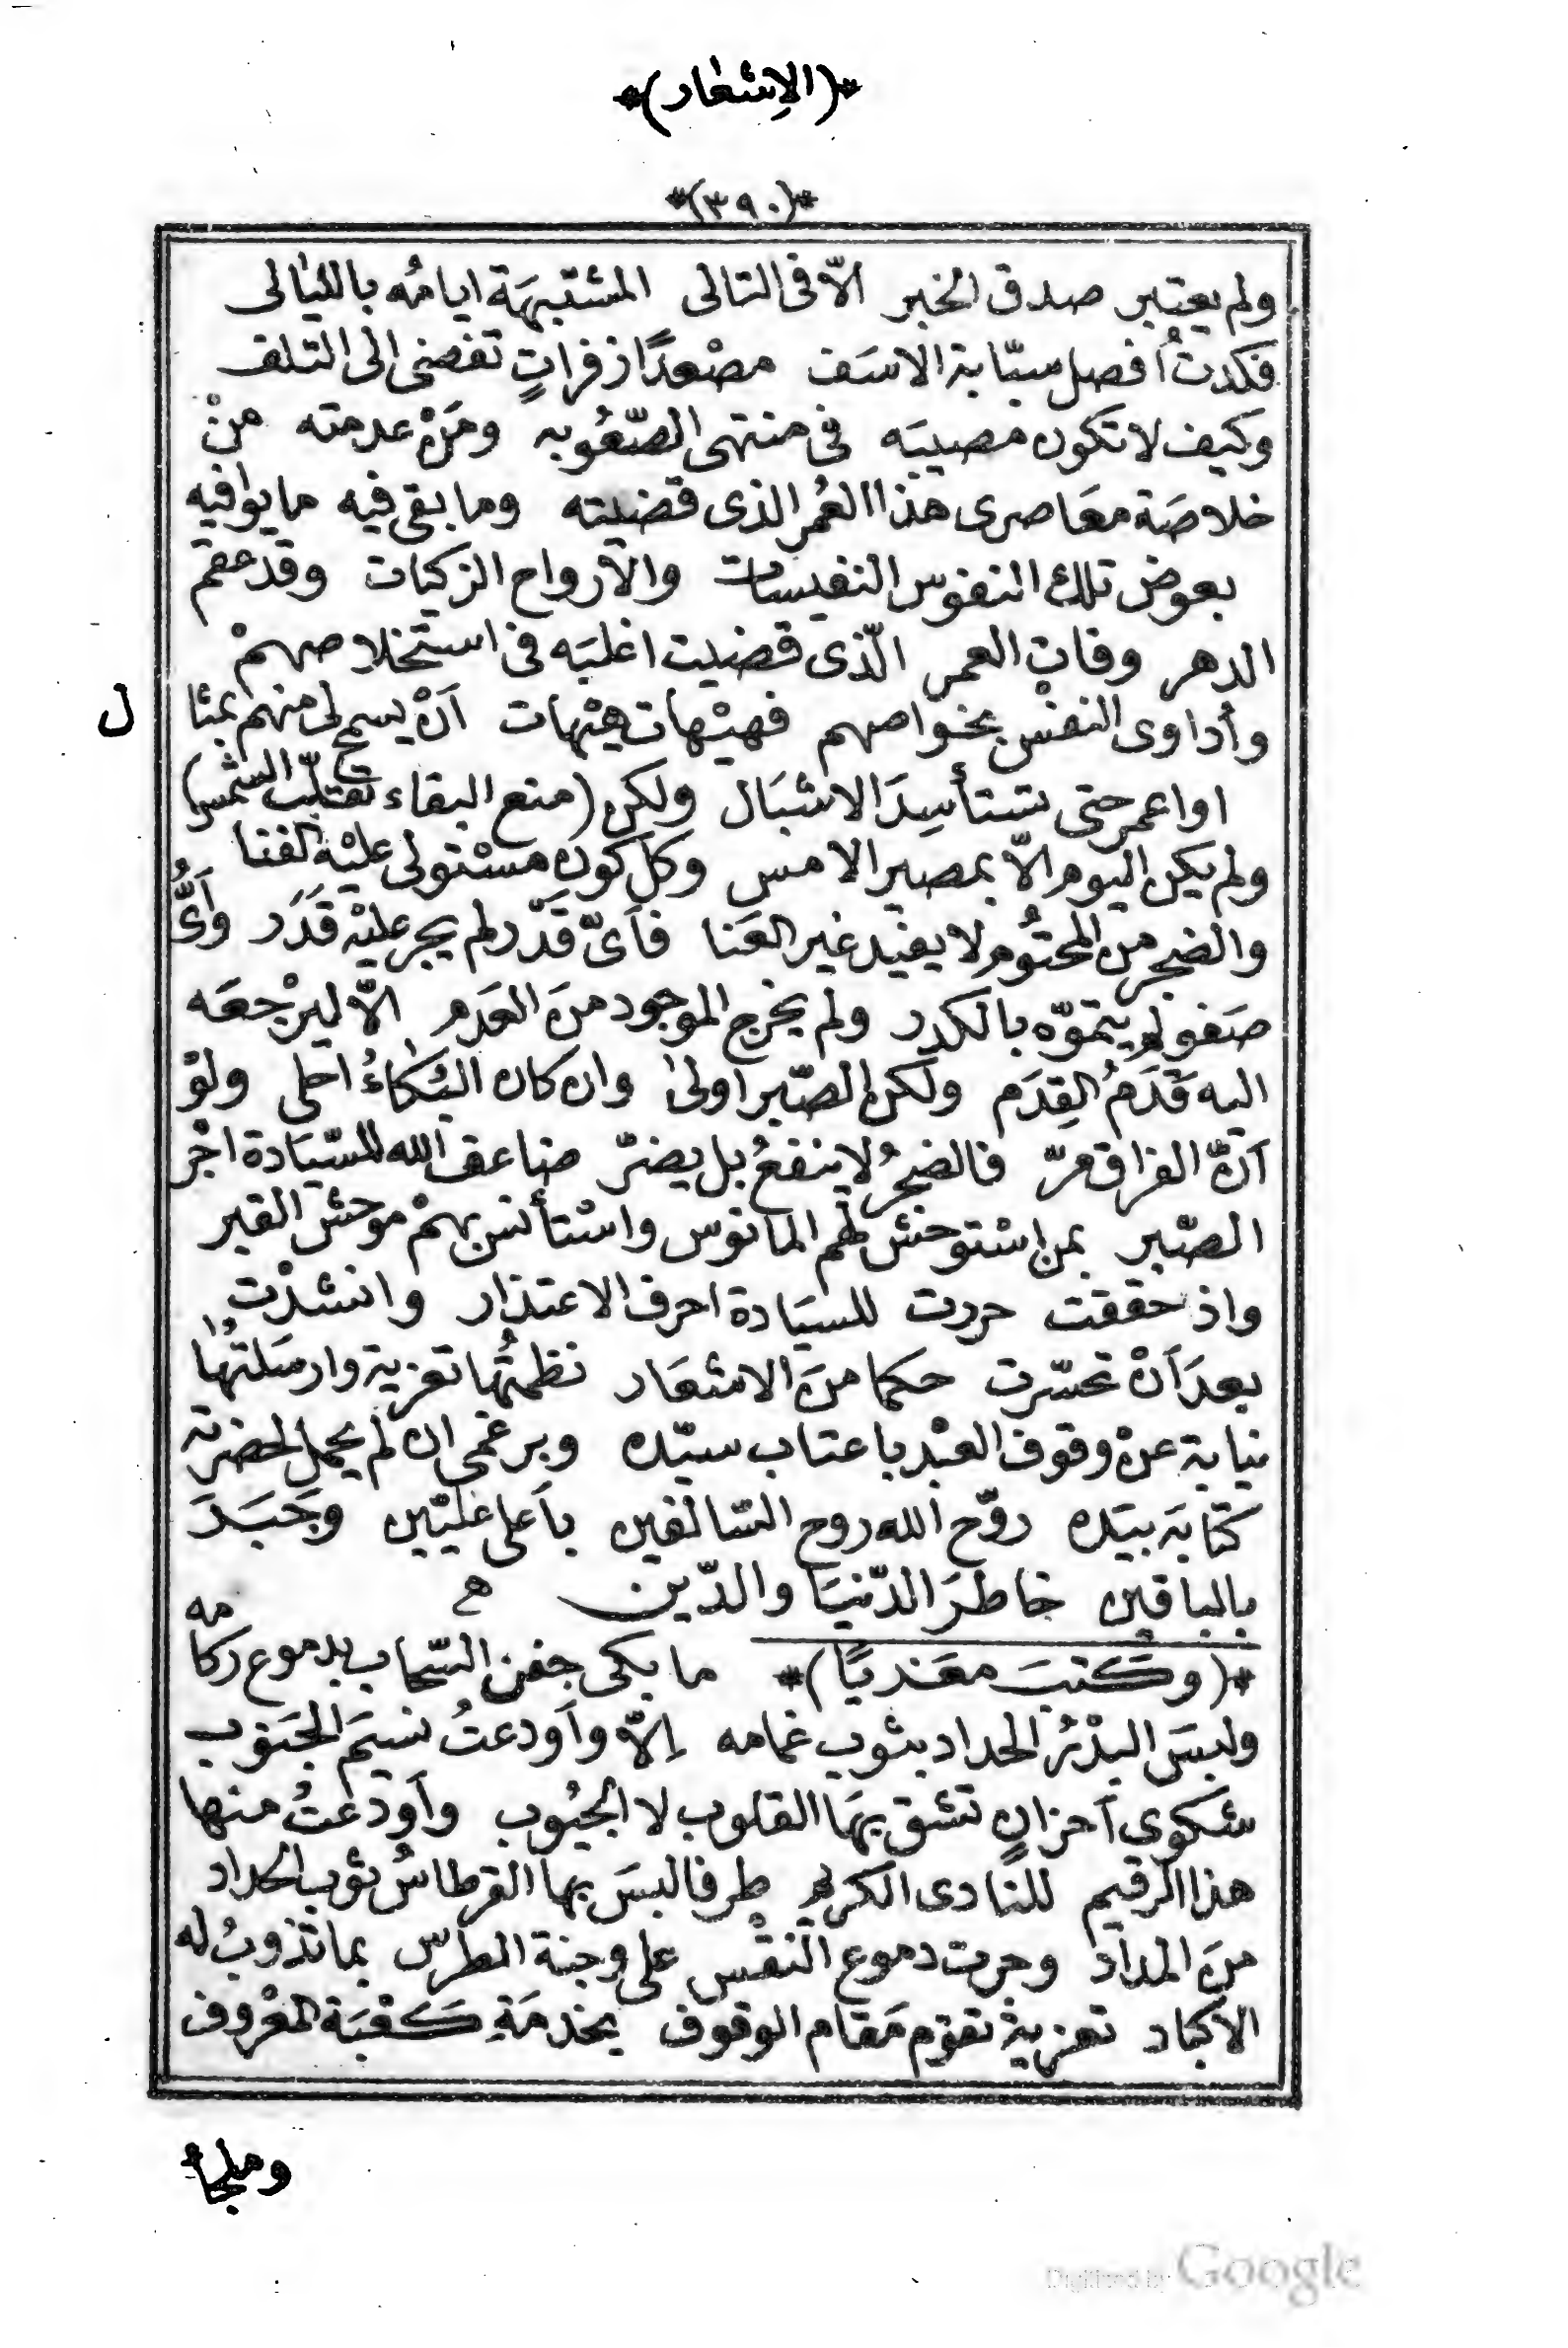 *(الاِشعار)*
*(٣٩٠)*
ولم يعتبر صدق الخبر الاّ فى التالى المشتبهَة ايامُه بالليَالى
فكدتُ أفصل سبّابة الاسَف مصْعدًا زفراتٍ تفضى الى التلف
وكيف لا تكون مصيبَه فى منتهى الصّعُوبه ومَنْ عدمته منْ
خلاصَة معَاصرى هذا العُمر الذى قضيته وما بقى فيه ما يوافيه
بعوض تلك النفوس النفيسات والارواح الزكيات وقد عقم
الدهر وفات العمر الّذى قضيت اغلبَه فى استخلاصهمْ
وأداوى النفْس بخواصهم فهيْهات هيْهات اَنْ يسمح لى منهم بمثا
ل
اواعمر حتى تستأسِدَ الاشبَال ولكن (منع البقاء تقلّب الشمس)
ولم يكن اليوم الاّ بمصير الامس وكل كون مسْتولى عليْه الفنا
والضجر من المحتُوم لا يفيد غير العَنا فاَىّ قَدّ لم يجر عليْه قَدَر واَىُّ
صَفو لم يتموّه بالكدر ولم يخرج الموجود منَ العدَم الاّ ليرْجعَه
اليه قَدَمُ القِدَم ولكن الصّبر اولى وان كان البُكاءُ احلى ولوْ
اَنّ الفراق مرّ فالضجرُ لا ينفعُ بل يضرّ ضاعف الله للسّيَادة اجْر
الصّبر بمن اسْتوحش لهم المانوس واسْتأنس بهمْ موحش القبر
واذ حققت حررت للسيَادة احرف الاعتذار وانشدْت
بعدَ اَنْ تحسّرت حكما منَ الاشعَار نظمتُها تعزية وارسَلتُها
نيابة عنْ وقوف العبْد باعتاب سيّده وبرغمى ان لم يحمل لحضرته
كتابَه بيَده روّح الله روح السّالفين باَعلى عليّين وجَبَدَ
بالباقين خاطرَ الدّنيَا والدّين ه
*(وكَتبَ معَزيًا)* ما بكى جفن السّحاب بدموع ركامه
ولبسَ البدْرُ الحداد بثوب غمامه اِلاّ واَودعتُ نسيَم الجَنوب
شكوى اَحزانٍ تشق بهَا القلوب لا الجيُوب واَودعتُ منها
هذا الرقيم للنادى الكريم طرفا لبسَ بها القرطاسُ ثوب الحداد
منَ المداد وجرت دموع النقْس على وجنة الطرس بما تذوبُ له
الاكباد تعزيةً تقوم مَقام الوقوف بخدمَةِ كَعْبَة المعْروف
وملجأ
Digitized by Google